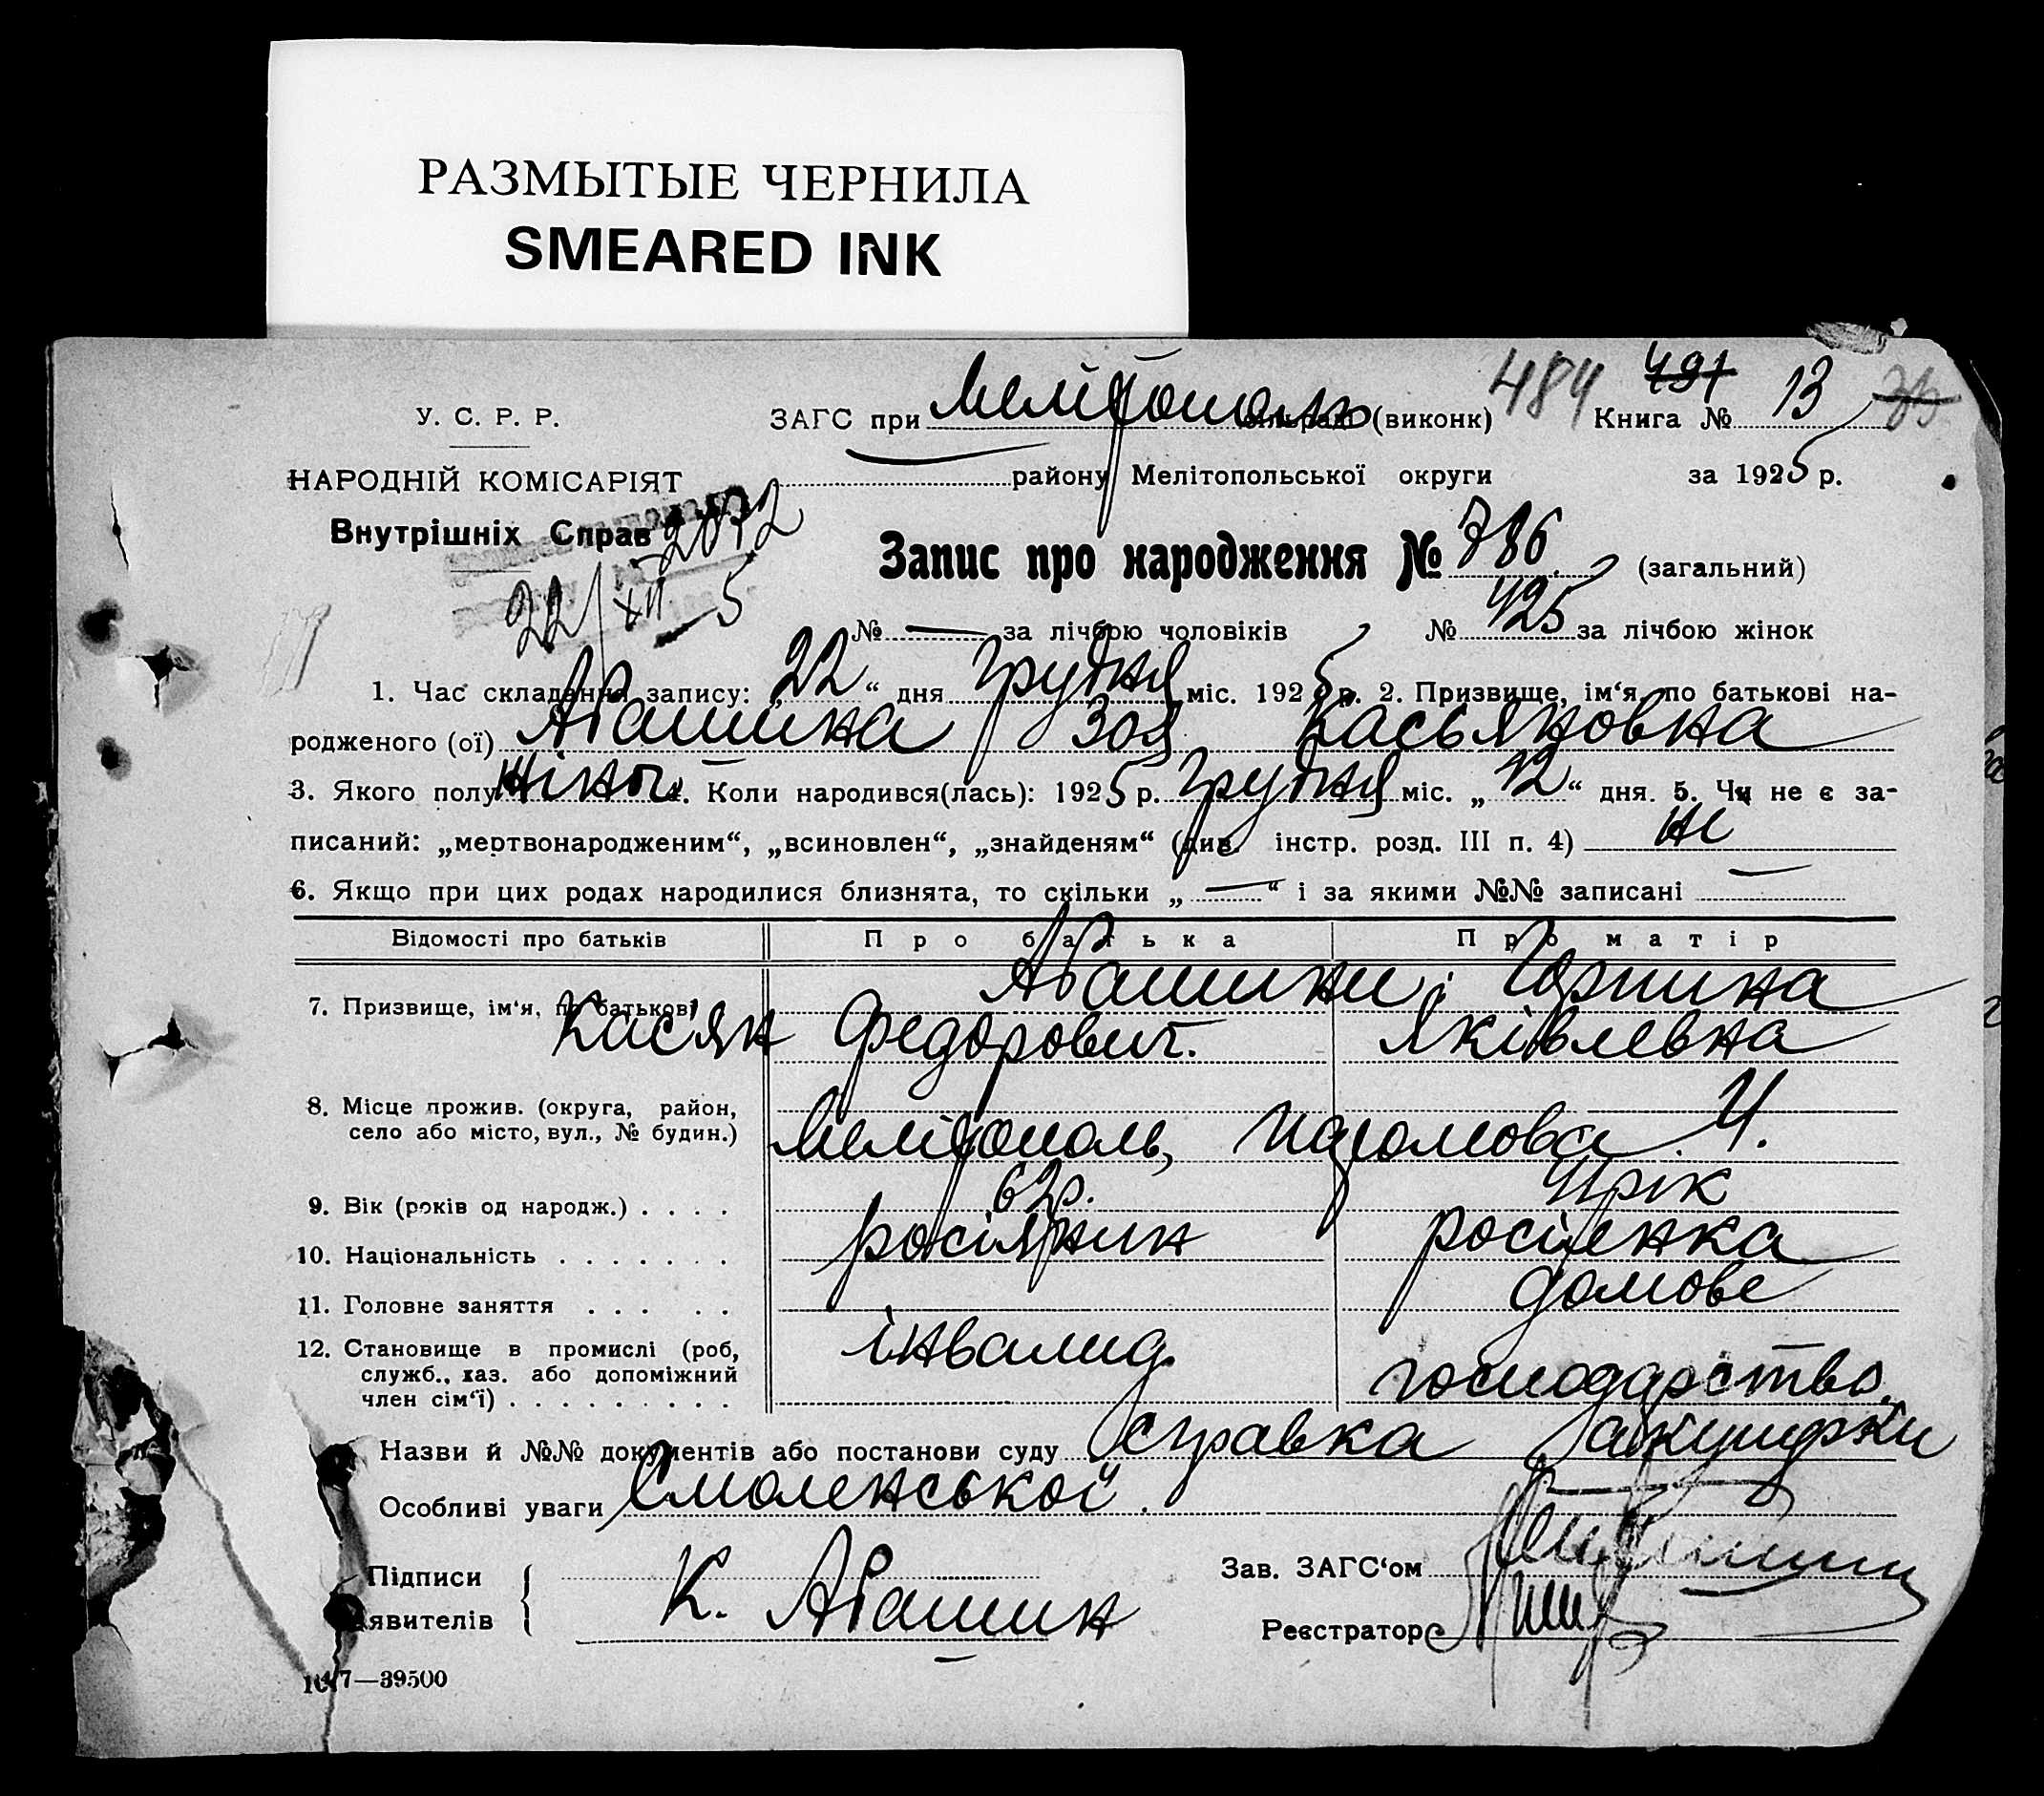 РАЗМЫТЫЕ ЧЕРНИЛА
SMEARED INK
У. С. Р. Р.
ЗАГС при Мелітополь (виконк) 484 491 Книга № 13
НАРОДНІЙ КОМІСАРІЯТ
району Мелітопольської округи за 1925 р.
Внутрішніх Справ 2072
22/XII 5
Запис про народження № 786 (загальний)
№ — за лічбою чоловіків № 425 за лічбою жінок
1. Час складання запису: „22“ дня грудня міс. 1925 р. 2. Призвище, ім‘я, по батькові на-
родженого (ої) Абашина Зоя Касьяновна
3. Якого полу жіноч. 4. Коли народився(лась): 1925 р. грудня міс. „12“ дня. 5. Чи не є за-
писаний: „мертвонародженим“, „всиновлен“, „знайденям“ (див. інстр. розд. III п. 4) не
6. Якщо при цих родах народилися близнята, то скільки „—“ і за якими №№ записані —
Відомості про батьків Про батька Про матір
7. Призвище, ім‘я, по батькові Абашини:
Касян Федорович. Яківлевна
8. Місце прожив. (округа, район,
село або місто, вул., № будин.) Мелітополь,
9. Вік (років од народж.) . . . . 62р.
10. Національність . . . . . . . росіянин росіянка
11. Головне заняття . . . . . домове
12. Становище в промислі (роб,
служб., хаз. або допоміжний
член сім‘ї) . . . . . . . . . інвалид господарство.
Назви й №№ документів або постанови суду справка акушерки
Особливі уваги Смоленської.
Підписи
явителів К. Абашин
Зав. ЗАГС‘ом
Реєстратор
7—39500